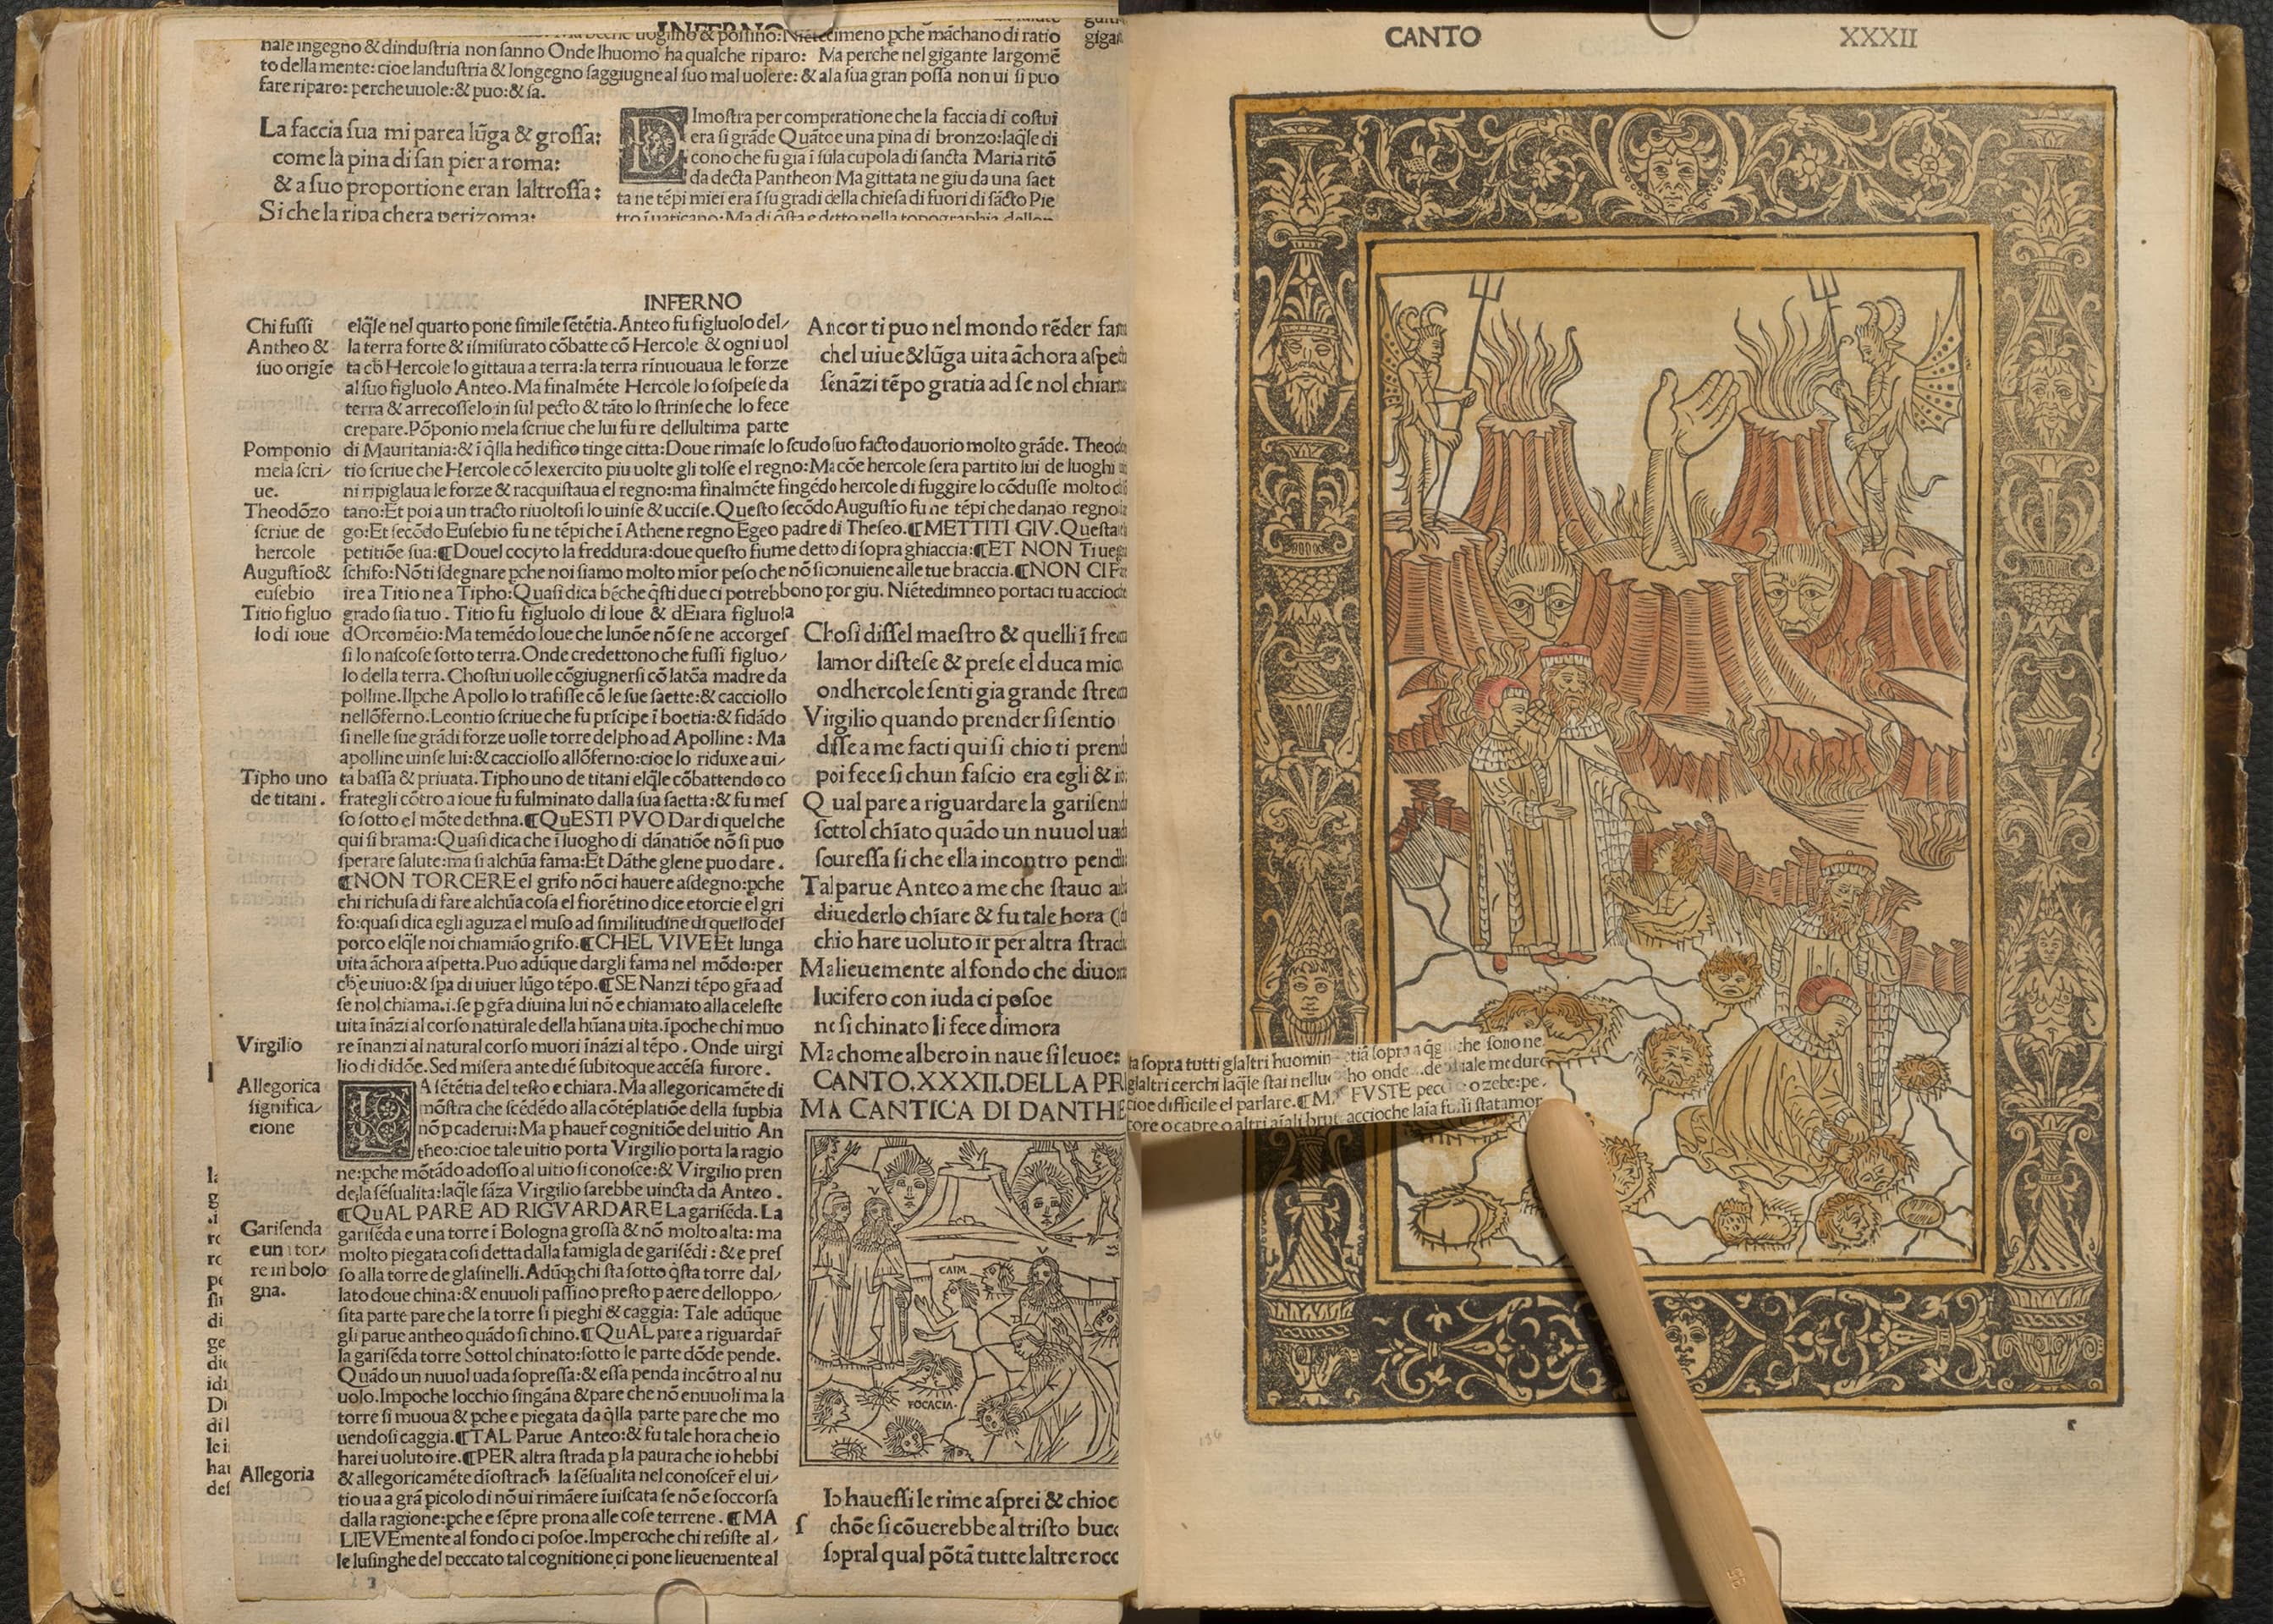 INFERNO
nale ingegno & dindustria non sanno Onde lhuomo ha qualche riparo: Ma perche nel gigante largomē
to della mente: cioe landustria & longegno saggiugne al suo mal uolere: & ala sua gran possa non ui si puo
fare riparo: perche uuole: & puo: & sa.
La faccia sua mi parea lūga & grossa:
come la pina di san pier a roma:
& a suo proportione eran laltrossa:
Si che la ripa chera perizoma:
DImostra per comperatione che la faccia di costui
era si grāde Quāto e una pina di bronzo: laq̄le di
cono che fu gia ī sula cupola di sancta Maria ritō
da decta Pantheon Ma gittata ne giu da una saet
ta ne tēpi miei era ī su gradi della chiesa di fuori di sācto Pie
INFERNO
Chi fussi
Antheo &
suo origīe
elq̄le nel quarto pone simile sētētia. Anteo fu figluolo del/
la terra forte & ismisurato cōbatte cō Hercole & ogni uol
ta ch̄ Hercole lo gittaua a terra: la terra rinuouaua le forze
al suo figluolo Anteo. Ma finalmēte Hercole lo sospese da
terra & arrecosselo in sul pecto & tāto lo strinse che lo fece
crepare. Pōponio mela scriue che lui fu re dellultima parte
Pomponio
mela scri/
ue.
Theodōzo
scriue de
hercole
Augustīo &
eusebio
Titio figluo
lo di ioue
di Mauritania: & ī q̄lla hedifico tinge citta: Doue rimase lo scudo suo facto dauorio molto grāde. Theod
tio scriue che Hercole cō lexercito piu uolte gli tolse el regno: Ma cōe hercole sera partito lui de luoghi
ni ripiglaua le forze & racquistaua el regno: ma finalmēte fingēdo hercole di fuggire lo cōdusse molto
tano: Et poi a un tracto riuoltosi lo uinse & uccise. Questo secōdo Augustīo fu ne tēpi che danao regno
go: Et secōdo Eusebio fu ne tēpi che ī Athene regno Egeo padre di Theseo. ¶METTITI GIV. Questa
petitiōe sua: ¶Douel cocyto la freddura: doue questo fiume detto di sopra ghiaccia: ¶ET NON Ti ueg
schifo: Nō ti sdegnare p̄che noi siamo molto mīor peso che nō si conuiene alle tue braccia. ¶NON CI F
ire a Titio ne a Tipho: Quasi dica bēche q̄sti due ci potrebbono por giu. Niētedimneo portaci tu accioc
grado sia tuo. Titio fu figluolo di Ioue & dEiara figluola
dOrcomēio: Ma temēdo Ioue che Iunōe nō se ne accorges
si lo nascose sotto terra. Onde credettono che fussi figluo/
lo della terra. Chostui uolle cōgiugnersi cō latōa madre da
polline. Ilp̄che Apollo lo trafisse cō le sue saette: & cacciollo
nellōferno. Leontio scriue che fu prīcipe ī boetia: & fidādo
si nelle sue grādi forze uolle torre delpho ad Apolline: Ma
apolline uinse lui: & cacciollo allōferno: cioe lo riduxe a ui/
Tipho uno
de titani.
ta bassa & priuata. Tipho uno de titani elq̄le cōbattendo co
frategli cōtro a ioue fu fulminato dalla sua saetta: & fu mes
so sotto el mōte dethna. ¶QuESTI PVO Dar di quel che
qui si brama: Quasi dica che ī luogho di dānatiōe nō si puo
sperare salute: ma si alchūa fama: Et Dāthe glene puo dare.
¶NON TORCERE el grifo nō ci hauere asdegno: p̄che
chi richusa di fare alchūa cosa el fiorētino dice etorcie el gri
fo: quasi dica egli aguza el muso ad similitudine di quello del
porco elq̄le noi chiamiāo grifo. ¶CHEL VIVE Et lunga
uita āchora aspetta. Puo adūque dargli fama nel mōdo: per
ch̄ e uiuo: & spa di uiuer lūgo tēpo. ¶SE Nanzi tēpo gr̄a ad
se nol chiama. i. se p gr̄a diuina lui nō e chiamato alla celeste
uita īnāzi al corso naturale della hūana uita. ī poche chi muo
Virgilio
re īnanzi al natural corso muori īnāzi al tēpo. Onde uirgi
lio di didōe. Sed misera ante diē subitoque accēsa furore.
Allegorica
significa/
cione
LA sētētia del testo e chiara. Ma allegoricamēte di
mōstra che scēdēdo alla cōtēplatiōe della supbia
nō p caderui: Ma p hauer̄ cognitiōe del uitio An
theo: cioe tale uitio porta Virgilio porta la ragio
ne: p̄che mōtādo adosso al uitio si conosce: & Virgilio pren
de la sēsualita: laq̄le sāza Virgilio sarebbe uincta da Anteo.
¶QuAL PARE AD RIGVARDARE La garisēda. La
Garisenda
e un tor/
re in bolo
gna.
garisēda e una torre ī Bologna grossa & nō molto alta: ma
molto piegata cosi detta dalla famigla de garisēdi: & e pres
so alla torre de glasinelli. Adūq; chi sta sotto q̄sta torre dal/
lato doue china: & enuuoli passino presto p aere delloppo/
sita parte pare che la torre si pieghi & caggia: Tale adūque
gli parue antheo quādo si chino. ¶QuAL pare a riguardar̄
la garisēda torre Sottol chinato: sotto le parte dōde pende.
Quādo un nuuol uada sopressa: & essa penda incōtro al nu
uolo. Impoche locchio singāna & pare che nō enuuoli ma la
torre si muoua & p̄che e piegata da q̄lla parte pare che mo
uendosi caggia. ¶TAL Parue Anteo: & fu tale hora che io
harei uoluto ire. ¶PER altra strada p la paura che io hebbi
Allegoria
& allegoricamēte dīostrach̄ la sēsualita nel conoscer̄ el ui/
tio ua a grā picolo di nō ui rimāere īuiscata se nō e soccorsa
dalla ragione: p̄che e sēpre prona alle cose terrene. ¶MA
LIEVEmente al fondo ci posoe. Imperoche chi resiste al/
le lusinghe del peccato tal cognitione ci pone lieuemente al
Ancor ti puo nel mondo rēder fam
chel uiue & lūga uita āchora aspe
sēnāzi tēpo gratia ad se nol chiam
Chosi dissel maestro & quelli ī fre
lamor distese & prese el duca mio
ondhercole senti gia grande stre
Virgilio quando prender si sentio
disse a me facti qui si chio ti prend
poi fece si chun fascio era egli & io
Qual pare a riguardare la garisend
sottol chīato quādo un nuuol uad
souressa si che ella incontro pend
Tal parue Anteo a me che stauo a
diuederlo chīare & fu tale hora
chio hare uoluto ir per altra strad
Ma lieuemente al fondo che diuo
lucifero con iuda ci posoe
ne si chinato li fece dimora
Ma chome albero in naue si leuoe:
CANTO. XXXII. DELLA PR
MA CANTICA DI DANTHE
CAIM
FOCACIA.
Io hauessi le rime aspre & chioc
s chōe si cōuerebbe al tristo buc
sopral qual pōtā tutte laltre rocc
CANTO XXXII
ta sopra tutti glaltri huomin
che sono ne
glaltri cerchi laq̄le stai nellu
cioe difficile el parlare. ¶M
FVSTE
o zebe: pe